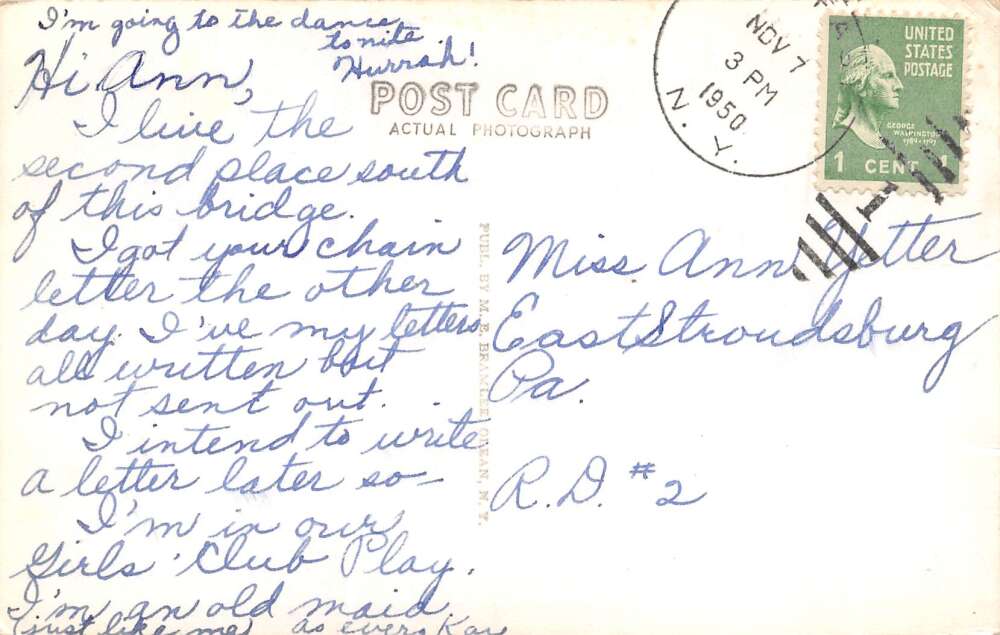 I'm going to the dance
tonite.
Hurrah!
Hi Ann,
I live the
second place south
of this bridge.
I got your chain
letter the other
day. I've my letters
all written but
not sent out.
I intend to write
a letter later so—
I'm in our
Girls' Club Play.
I'm an old maid.
(just like me) as ever Kay
POST CARD
ACTUAL PHOTOGRAPH
PUBL. BY M. E. BRAMLEE, OLEAN, N. Y.
NOV 7
3 PM
1950
N. Y.
UNITED
STATES
POSTAGE
GEORGE
WASHINGTON
1 CENT 1
Miss Ann Yetter
East Stroudsburg
Pa.
R.D. #2